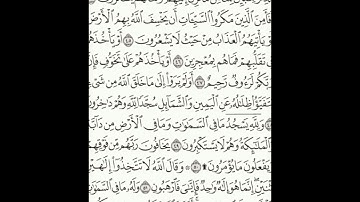 فَأَمِنَ ٱلَّذِينَ مَكَرُوا۟ ٱلسَّيِّـَٔاتِ أَن يَخْسِفَ ٱللَّهُ بِهِمُ ٱلْأَرْضَ
أَوْ يَأْتِيَهُمُ ٱلْعَذَابُ مِنْ حَيْثُ لَا يَشْعُرُونَ ٤٥ أَوْ يَأْخُذَهُمْ
فِى تَقَلُّبِهِمْ فَمَا هُم بِمُعْجِزِينَ ٤٦ أَوْ يَأْخُذَهُمْ عَلَىٰ تَخَوُّفٍ فَإِنَّ
رَبَّكُمْ لَرَءُوفٌ رَّحِيمٌ ٤٧ أَوَلَمْ يَرَوْا۟ إِلَىٰ مَا خَلَقَ ٱللَّهُ مِن شَىْءٍ
يَتَفَيَّؤُا۟ ظِلَـٰلُهُۥ عَنِ ٱلْيَمِينِ وَٱلشَّمَآئِلِ سُجَّدًا لِّلَّهِ وَهُمْ دَٰخِرُونَ
٤٨ وَلِلَّهِ يَسْجُدُ مَا فِى ٱلسَّمَـٰوَٰتِ وَمَا فِى ٱلْأَرْضِ مِن دَآبَّةٍ
وَٱلْمَلَـٰٓئِكَةُ وَهُمْ لَا يَسْتَكْبِرُونَ ٤٩ يَخَافُونَ رَبَّهُم مِّن فَوْقِهِمْ
وَيَفْعَلُونَ مَا يُؤْمَرُونَ ۩ ٥٠ وَقَالَ ٱللَّهُ لَا تَتَّخِذُوٓا۟ إِلَـٰهَيْنِ
ٱثْنَيْنِ إِنَّمَا هُوَ إِلَـٰهٌ وَٰحِدٌ فَإِيَّـٰىَ فَٱرْهَبُونِ ٥١ وَلَهُۥ مَا فِى ٱلسَّمَـٰوَٰتِ